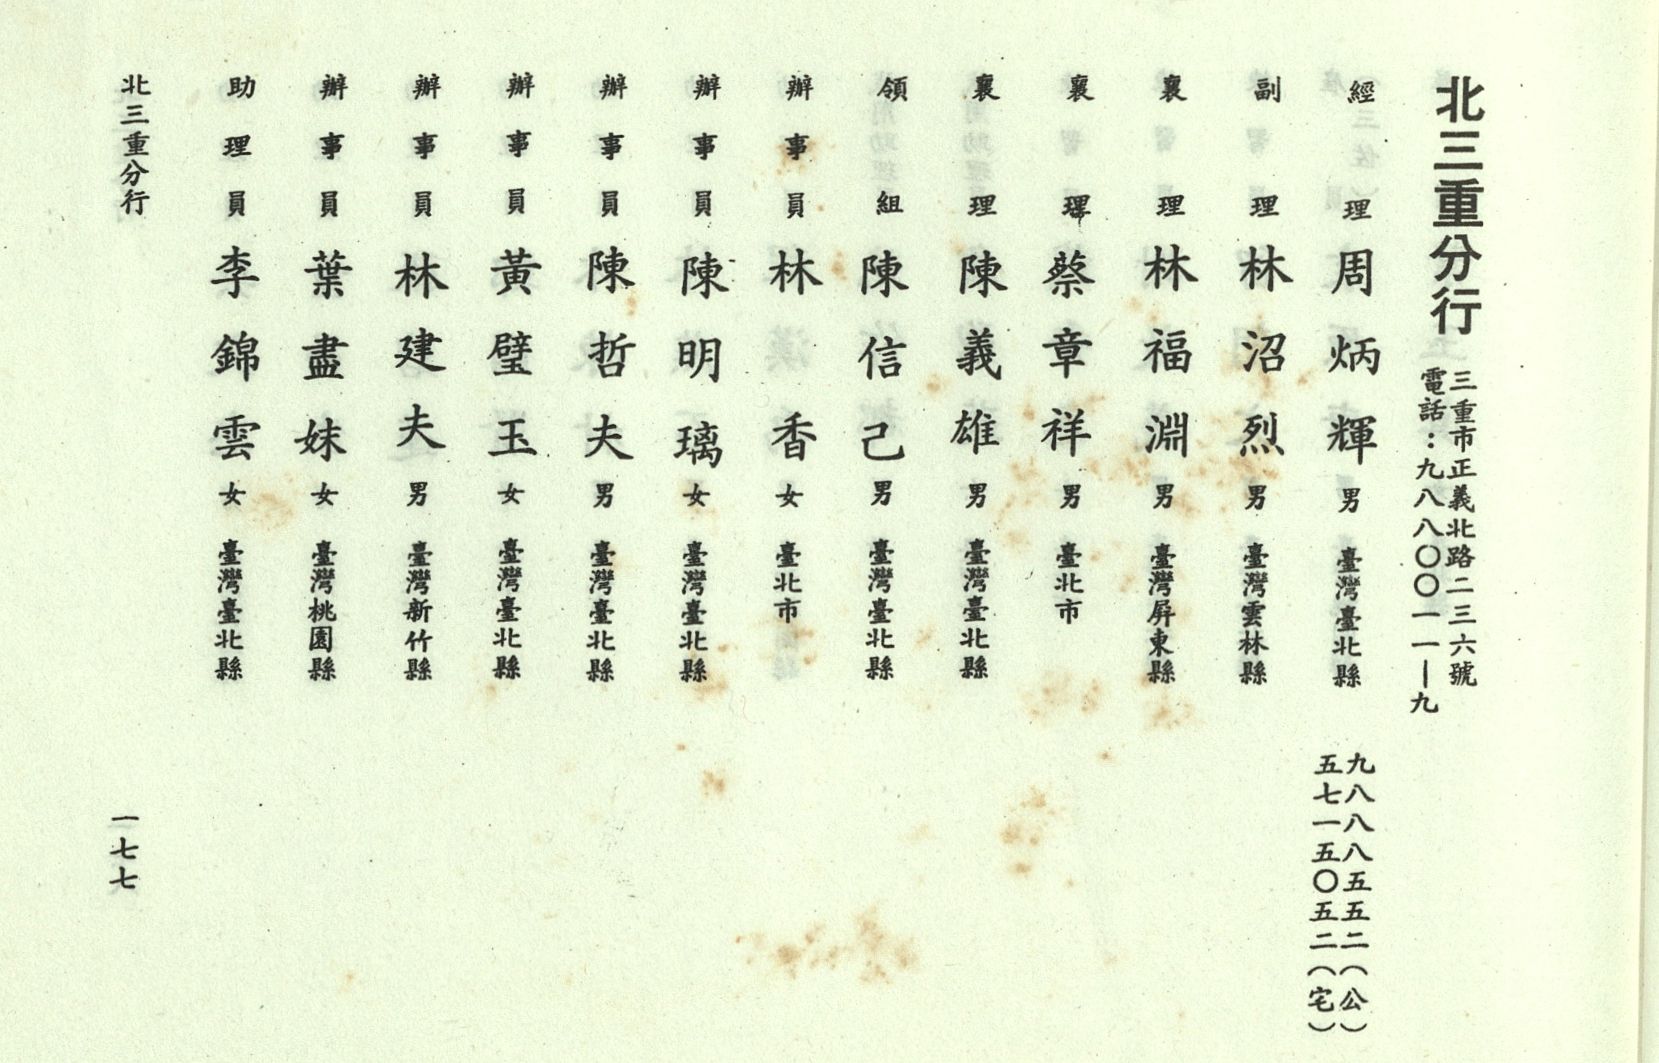 北三重分行
三重市正義北路二三六號
電話：九八八〇〇一一—九
經理 周炳輝 男 臺灣臺北縣
九八八八五五二（公）
五七一五〇五二（宅）
副理 林沼烈 男 臺灣雲林縣
襄理 林福淵 男 臺灣屏東縣
襄理 蔡章祥 男 臺北市
襄理 陳義雄 男 臺灣臺北縣
領組 陳信己 男 臺灣臺北縣
辦事員 林香 女 臺北市
辦事員 陳明璃 女 臺灣臺北縣
辦事員 陳哲夫 男 臺灣臺北縣
辦事員 黃璧玉 女 臺灣臺北縣
辦事員 林建夫 男 臺灣新竹縣
辦事員 葉盡妹 女 臺灣桃園縣
助理員 李錦雲 女 臺灣臺北縣
北三重分行
一七七